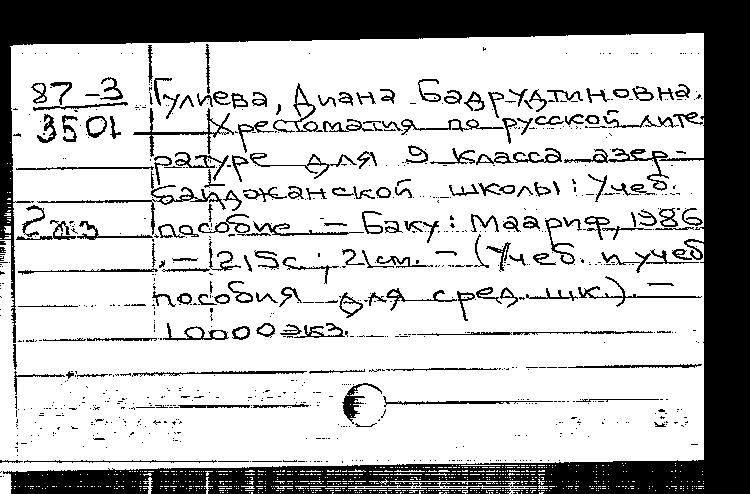 87-3 Гулиева, Диана Бадрудтиновна.
3501 Хрестоматия по русской лите-
ратуре для 9 класса азер-
байджанской школы: Учеб.
2 экз пособие. – Баку: Маариф, 1986
. – 215с.; 21см. – (Учеб. и учеб
пособия для сред. шк.). –
10000 экз.